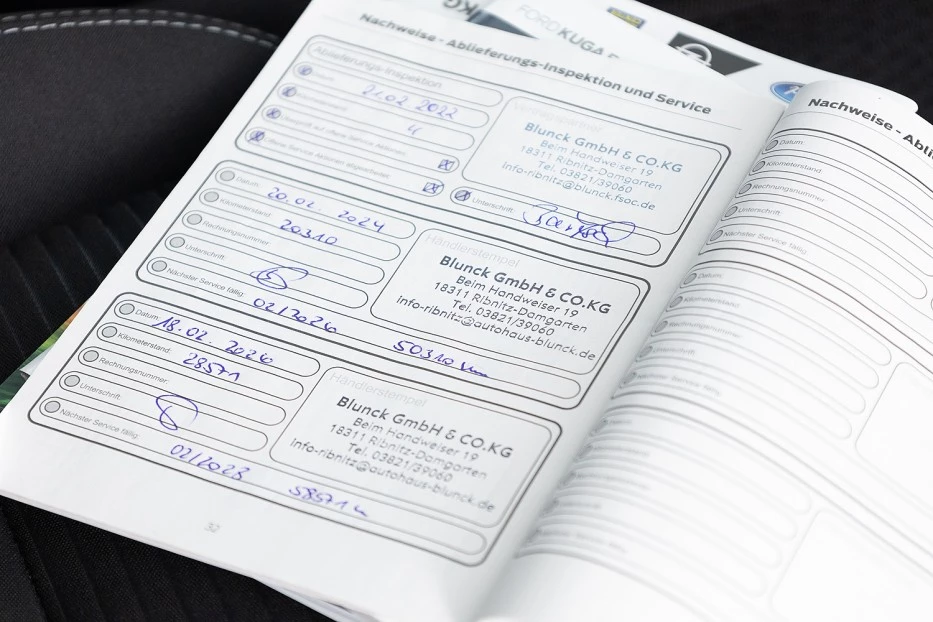 FORD KUGA
Nachweise - Ablieferungs-Inspektion und Service
Ablieferungs-Inspektion
Datum:
21.02.2022
4
Blunck GmbH & CO.KG
Beim Handweiser 19
18311 Ribnitz-Damgarten
Tel. 03821/39060
Info-ribnitz@blunck.fsoc.de
Unterschrift:
Datum:
20.02. 2024
Kilometerstand:
20310
Rechnungsnummer:
Unterschrift:
Nächster Service fällig:
02/2026
50310 km
Händlerstempel
Blunck GmbH & CO.KG
Beim Handweiser 19
18311 Ribnitz-Damgarten
Tel. 03821/39060
Info-ribnitz@autohaus-blunck.de
Datum:
18.02. 2026
Kilometerstand:
28571
Rechnungsnummer:
Unterschrift:
Nächster Service fällig:
02/2028
58571 km
Händlerstempel
Blunck GmbH & CO.KG
Beim Handweiser 19
18311 Ribnitz-Damgarten
Tel. 03821/39060
Info-ribnitz@autohaus-blunck.de
32
Nachweise - Abli
Datum:
Kilometerstand:
Rechnungsnummer:
Unterschrift:
Nächster Service fällig:
Datum:
Kilometerstand:
Rechnungsnummer: